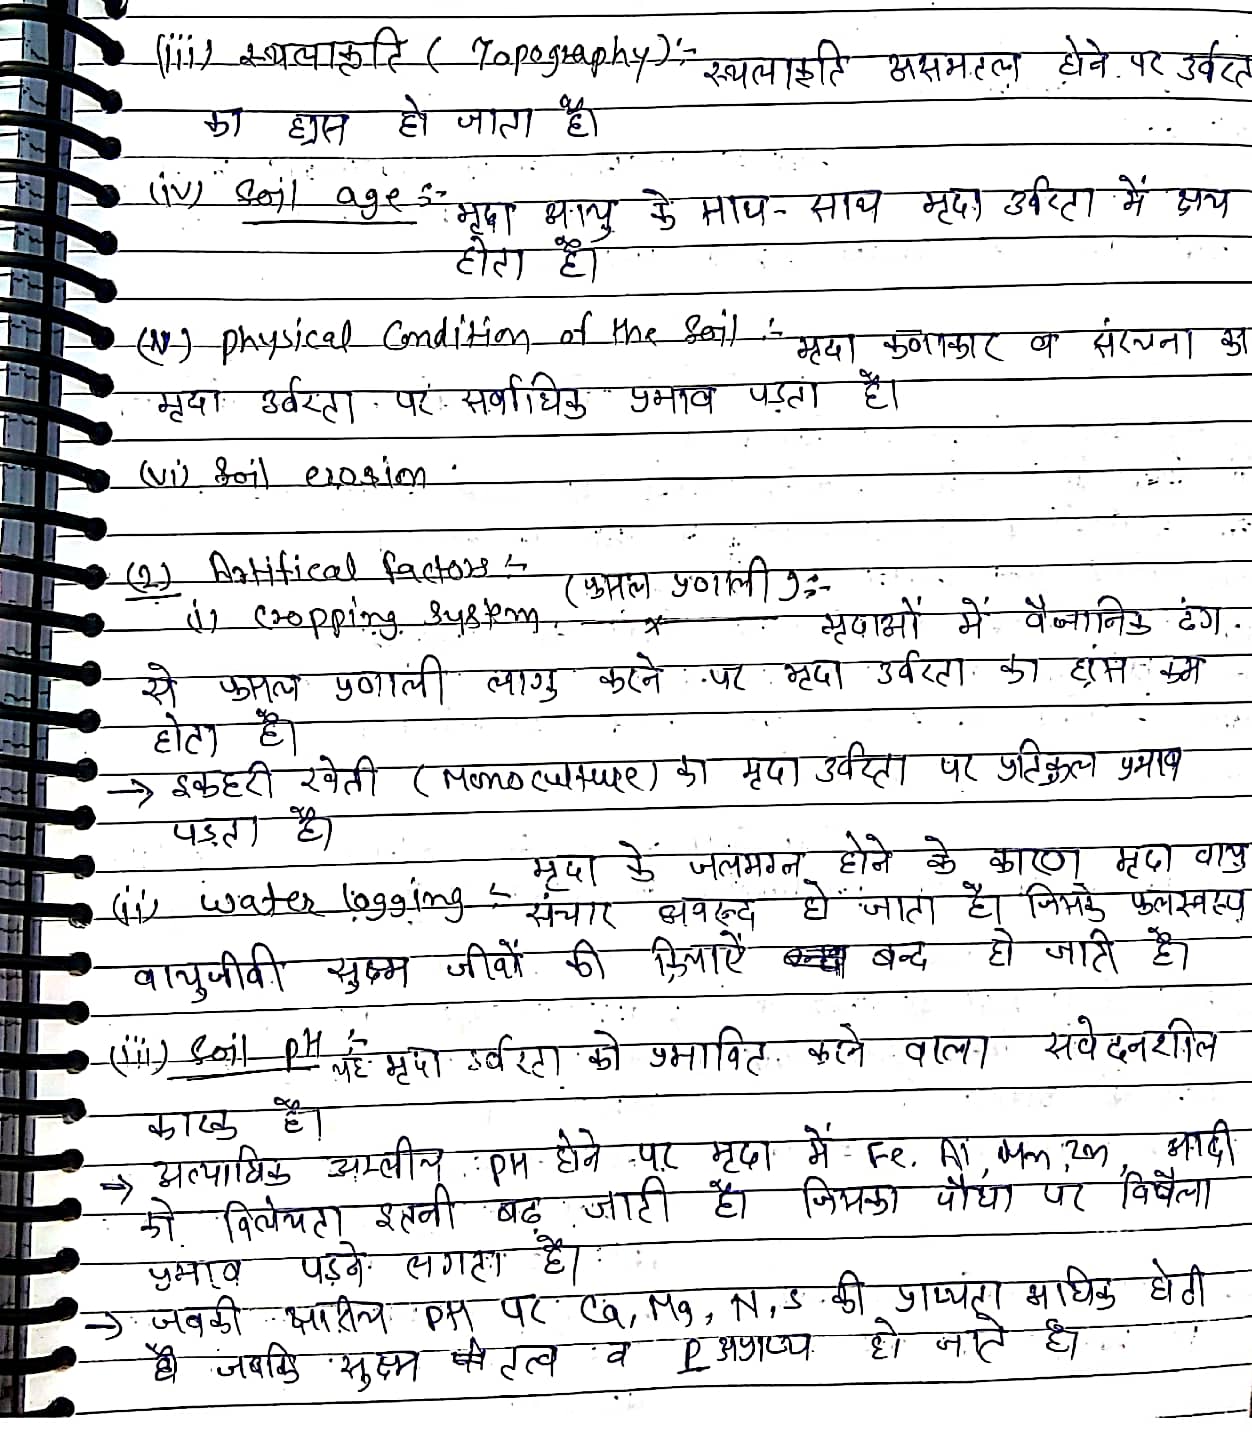 (iii) स्थलाकृति ( Topography):- स्थलाकृति असमतल होने पर उर्वरत
का ह्रास हो जाता है।
(iv) Soil age :- मृदा आयु के साथ - साथ मृदा उर्वरता में क्षय
होता है।
(v) physical Condition of the Soil :- मृदा कणाकार व संरचना का
मृदा उर्वरता पर सर्वाधिक प्रभाव पड़ता है।
(vi) Soil erosion
(2) Artifical factors :-
i) cropping system (फसल प्रणाली) :- मृदाओं में वैज्ञानिक ढंग
से फसल प्रणाली लागु करने पर मृदा उर्वरता का ह्रास कम
होता है।
→ इकहरी खेती ( Monoculture) का मृदा उर्वरता पर प्रतिकुल प्रभाव
पड़ता है।
(ii) water logging :- मृदा के जलमग्न होने के कारण मृदा वायु
संचार अवरुद्द हो जाता है। जिसके फलस्वरूप
वायुजीवी सुक्ष्म जीवों की क्रिलाऐं बन्द हो जाती है।
(iii) Soil pH :- यह मृदा उर्वरता को प्रभावित करने वाला संवेदनशील
कारक है।
→ अत्याधिक अम्लीय pH होने पर मृदा में Fe, Al, Mn, Zn, आदी
की विलेयता इतनी बढ़ जाती है। जिसका पौधो पर विषैला
प्रभाव पड़ने लगता है।
→ जबकी क्षारीय pH पर Ca, Mg, N, S की प्राप्यता अधिक होती
है जबकि सुक्ष्म तत्व व P अप्राप्य हो जाते है।